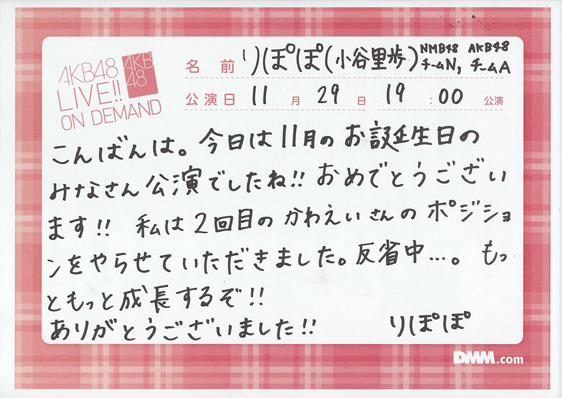 AKB48
LIVE!!
ON DEMAND
AKB
48
名前 りぽぽ(小谷里歩) NMB48 チームN, AKB48 チームA
公演日 11月29日19:00公演
こんばんは。今日は11月のお誕生日の
みなさん公演でしたね!! おめでとうござい
ます!! 私は2回目のかわえいさんのポジショ
ンをやらせていただきました。反省中…。もっ
ともっと成長するぞ!!
ありがとうございました!! りぽぽ
DMM.com